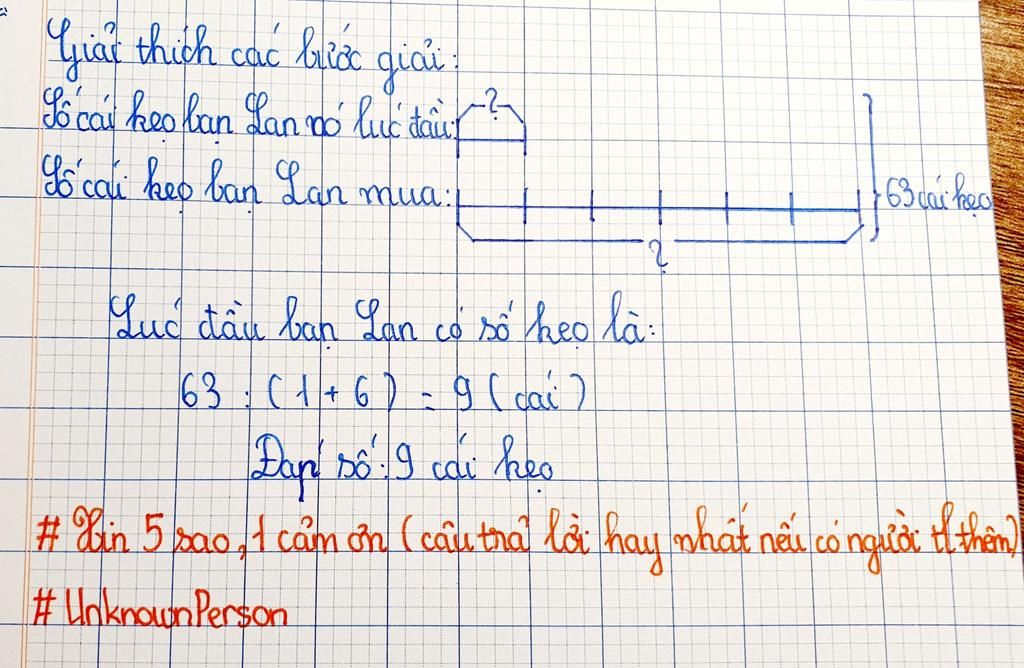 Giải thích các bước giải:
Số cái kẹo bạn Lan có lúc đầu:
?
Số cái kẹo bạn Lan mua:
63 cái kẹo
?
Lúc đầu bạn Lan có số kẹo là:
63 : (1 + 6) = 9 (cái)
Đáp số: 9 cái kẹo
# Xin 5 sao, 1 cảm ơn (câu trả lời hay nhất nếu có người tl thêm)
# UnknownPerson